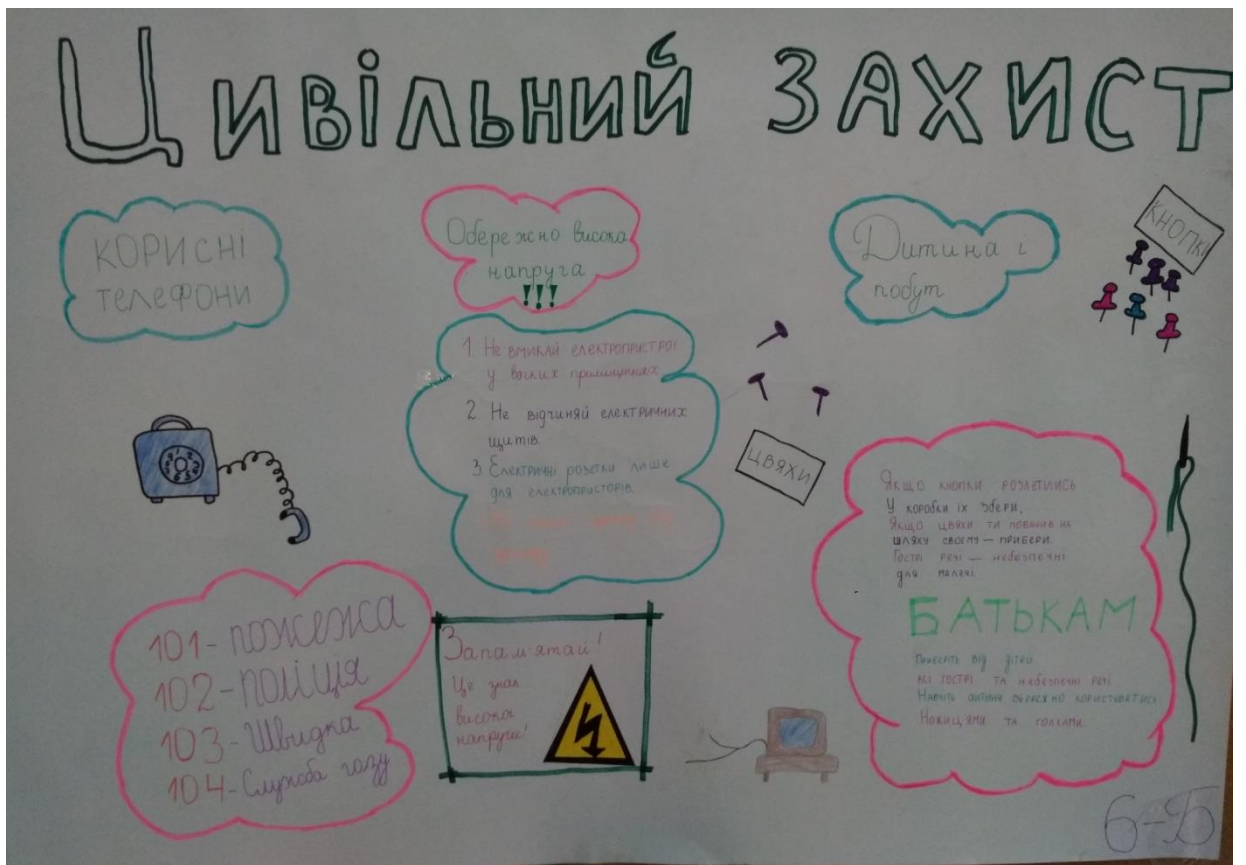 ЦИВІЛЬНИЙ ЗАХИСТ
КОРИСНІ
ТЕЛЕФОНИ
101-пожежа
102-поліція
103-Швидка
104-Служба газу
Обережно висока
напруга
!!!
1. Не вмикай електропристрої
у вогких приміщеннях
2. Не відчиняй електричних
щитів.
3. Електричні розетки лише
для електропристорів.
Запам'ятай!
Це знак
високої
напруги!
ЦВЯХИ
Дитина і
побут
КНОПКИ
Якщо кнопки розлетілись
У коробки їх збери,
Якщо цвяхи ти побачив на
шляху своєму — прибери.
Гострі речі — небезпечні
для малечі.
БАТЬКАМ
від дітей
всі гострі та небезпечні речі
Навчіть дитину обережно користуватись
Ножицями та голками.
6-Б